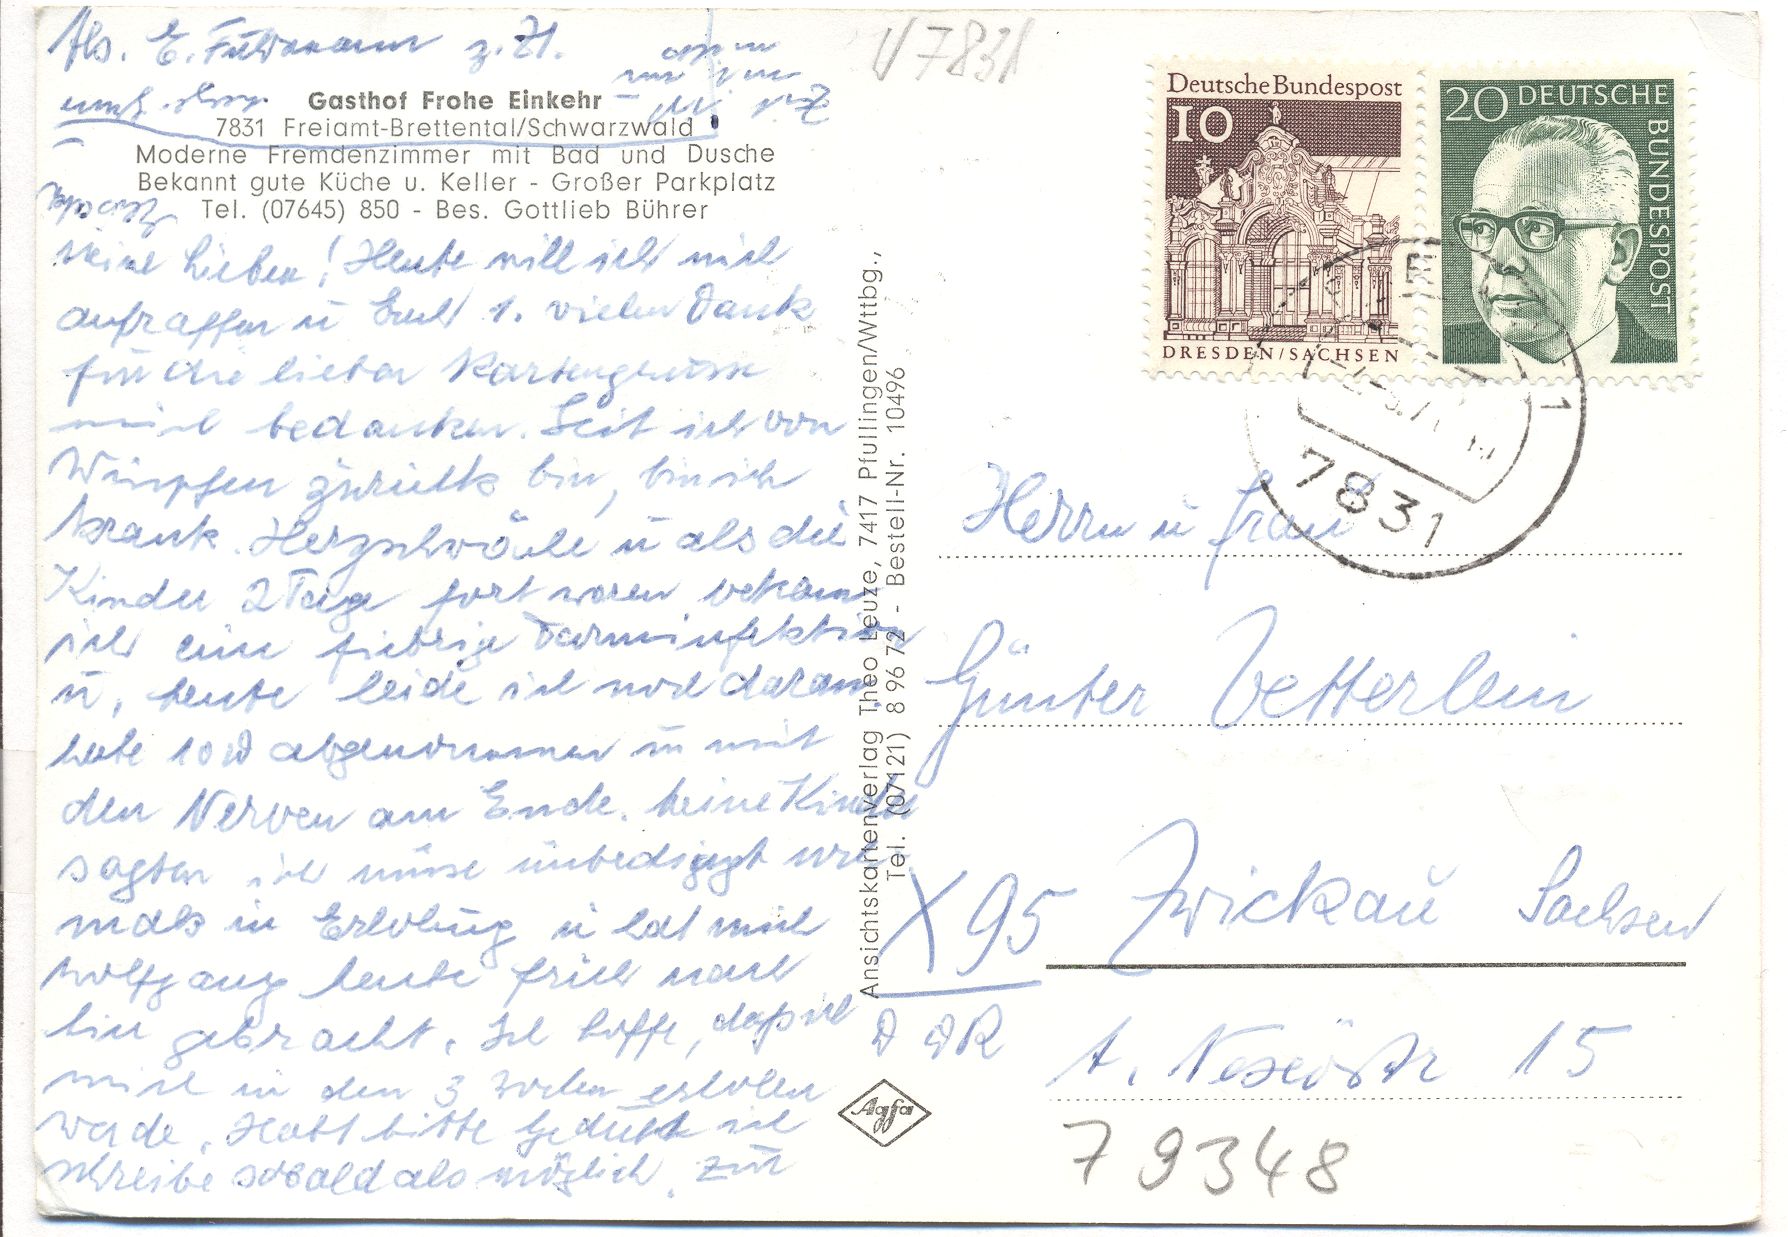 Abs. E. Fuhrmann z. Zt.
Gasthof Frohe Einkehr
7831 Freiamt-Brettental/Schwarzwald
Moderne Fremdenzimmer mit Bad und Dusche
Bekannt gute Küche u. Keller - Großer Parkplatz
Tel. (07645) 850 - Bes. Gottlieb Bührer
Meine Lieben! Heute will ich mich
aufraffen u Euch 1. vielen Dank
für die lieben Kartengrüsse
mich bedanken. Seit ich von
Wimpfen zurück bin, bin ich
krank. Herzschwäche u als die
Kinder 2 Tage fort waren bekam
ich eine fiebrige Darminfektion
u, heute leide ich noch daran,
habe 10 ℔ abgenommen u mit
den Nerven am Ende. Meine Kinder
sagten ich müsse unbedingt
mals in Erholung u hat mich
Wolfgang heute früh nach
hier gebracht. Ich hoffe, daß ich
mich in den 3 Wochen erholen
werde. Habt bitte Geduld ich
schreibe sobald als möglich. Zur
Ansichtskartenverlag Theo Leuze, 7417 Pfullingen/Wttbg.,
Tel. (07121) 8 96 72 - Bestell-Nr. 10496
Agfa
V 7831
Deutsche Bundespost
10
DRESDEN/SACHSEN
20 DEUTSCHE
BUNDESPOST
7831
1
Herrn u Frau
Günter Vetterlein
X 95 Zwickau Sachsen
DDR
15
79348